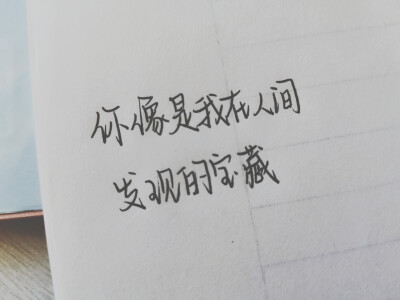 你像是我在人间
发现的宝藏